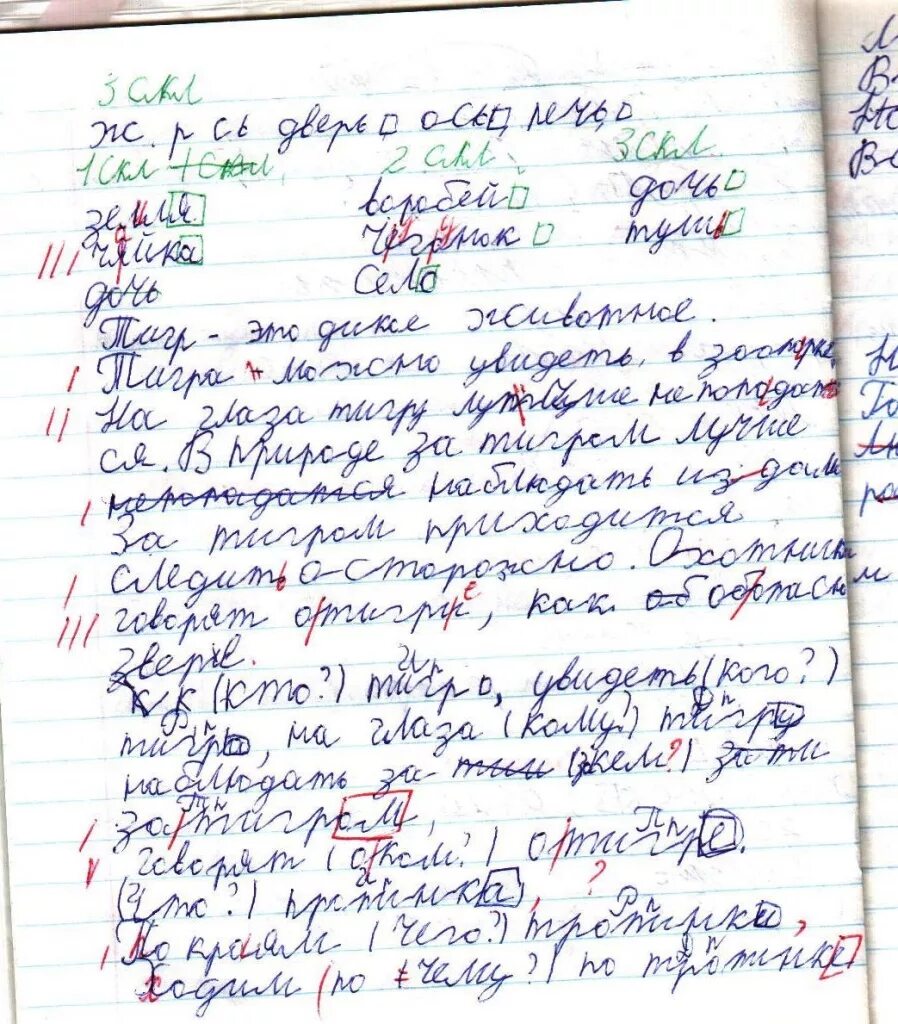 3 скл
ж. р сь дверь ось, печь,
1 скл 1 скл 2 скл 3 скл
земля воробей дочь
чайка тушь
дочь село
Тигр - это дикое животное.
Тигра можно увидеть, в зоопарке
На глаза тигру лучше не попадать
ся. В природе за тигром лучше
непопадатся наблюдать из дали
За тигром приходится
следить о-сторожно. Охотники
говорят о тигре, как об опасном
звере.
(кто?) тигр, увидеть (кого?)
тигра, на глаза (кому?) тигру
наблюдать за (кем?) за ти
за тигром,
говорят (о ком?) о тигре.
(Что?) тротинка, ?
По краям (чего?) тротинки,
Ходим (по чему?) по тротинке